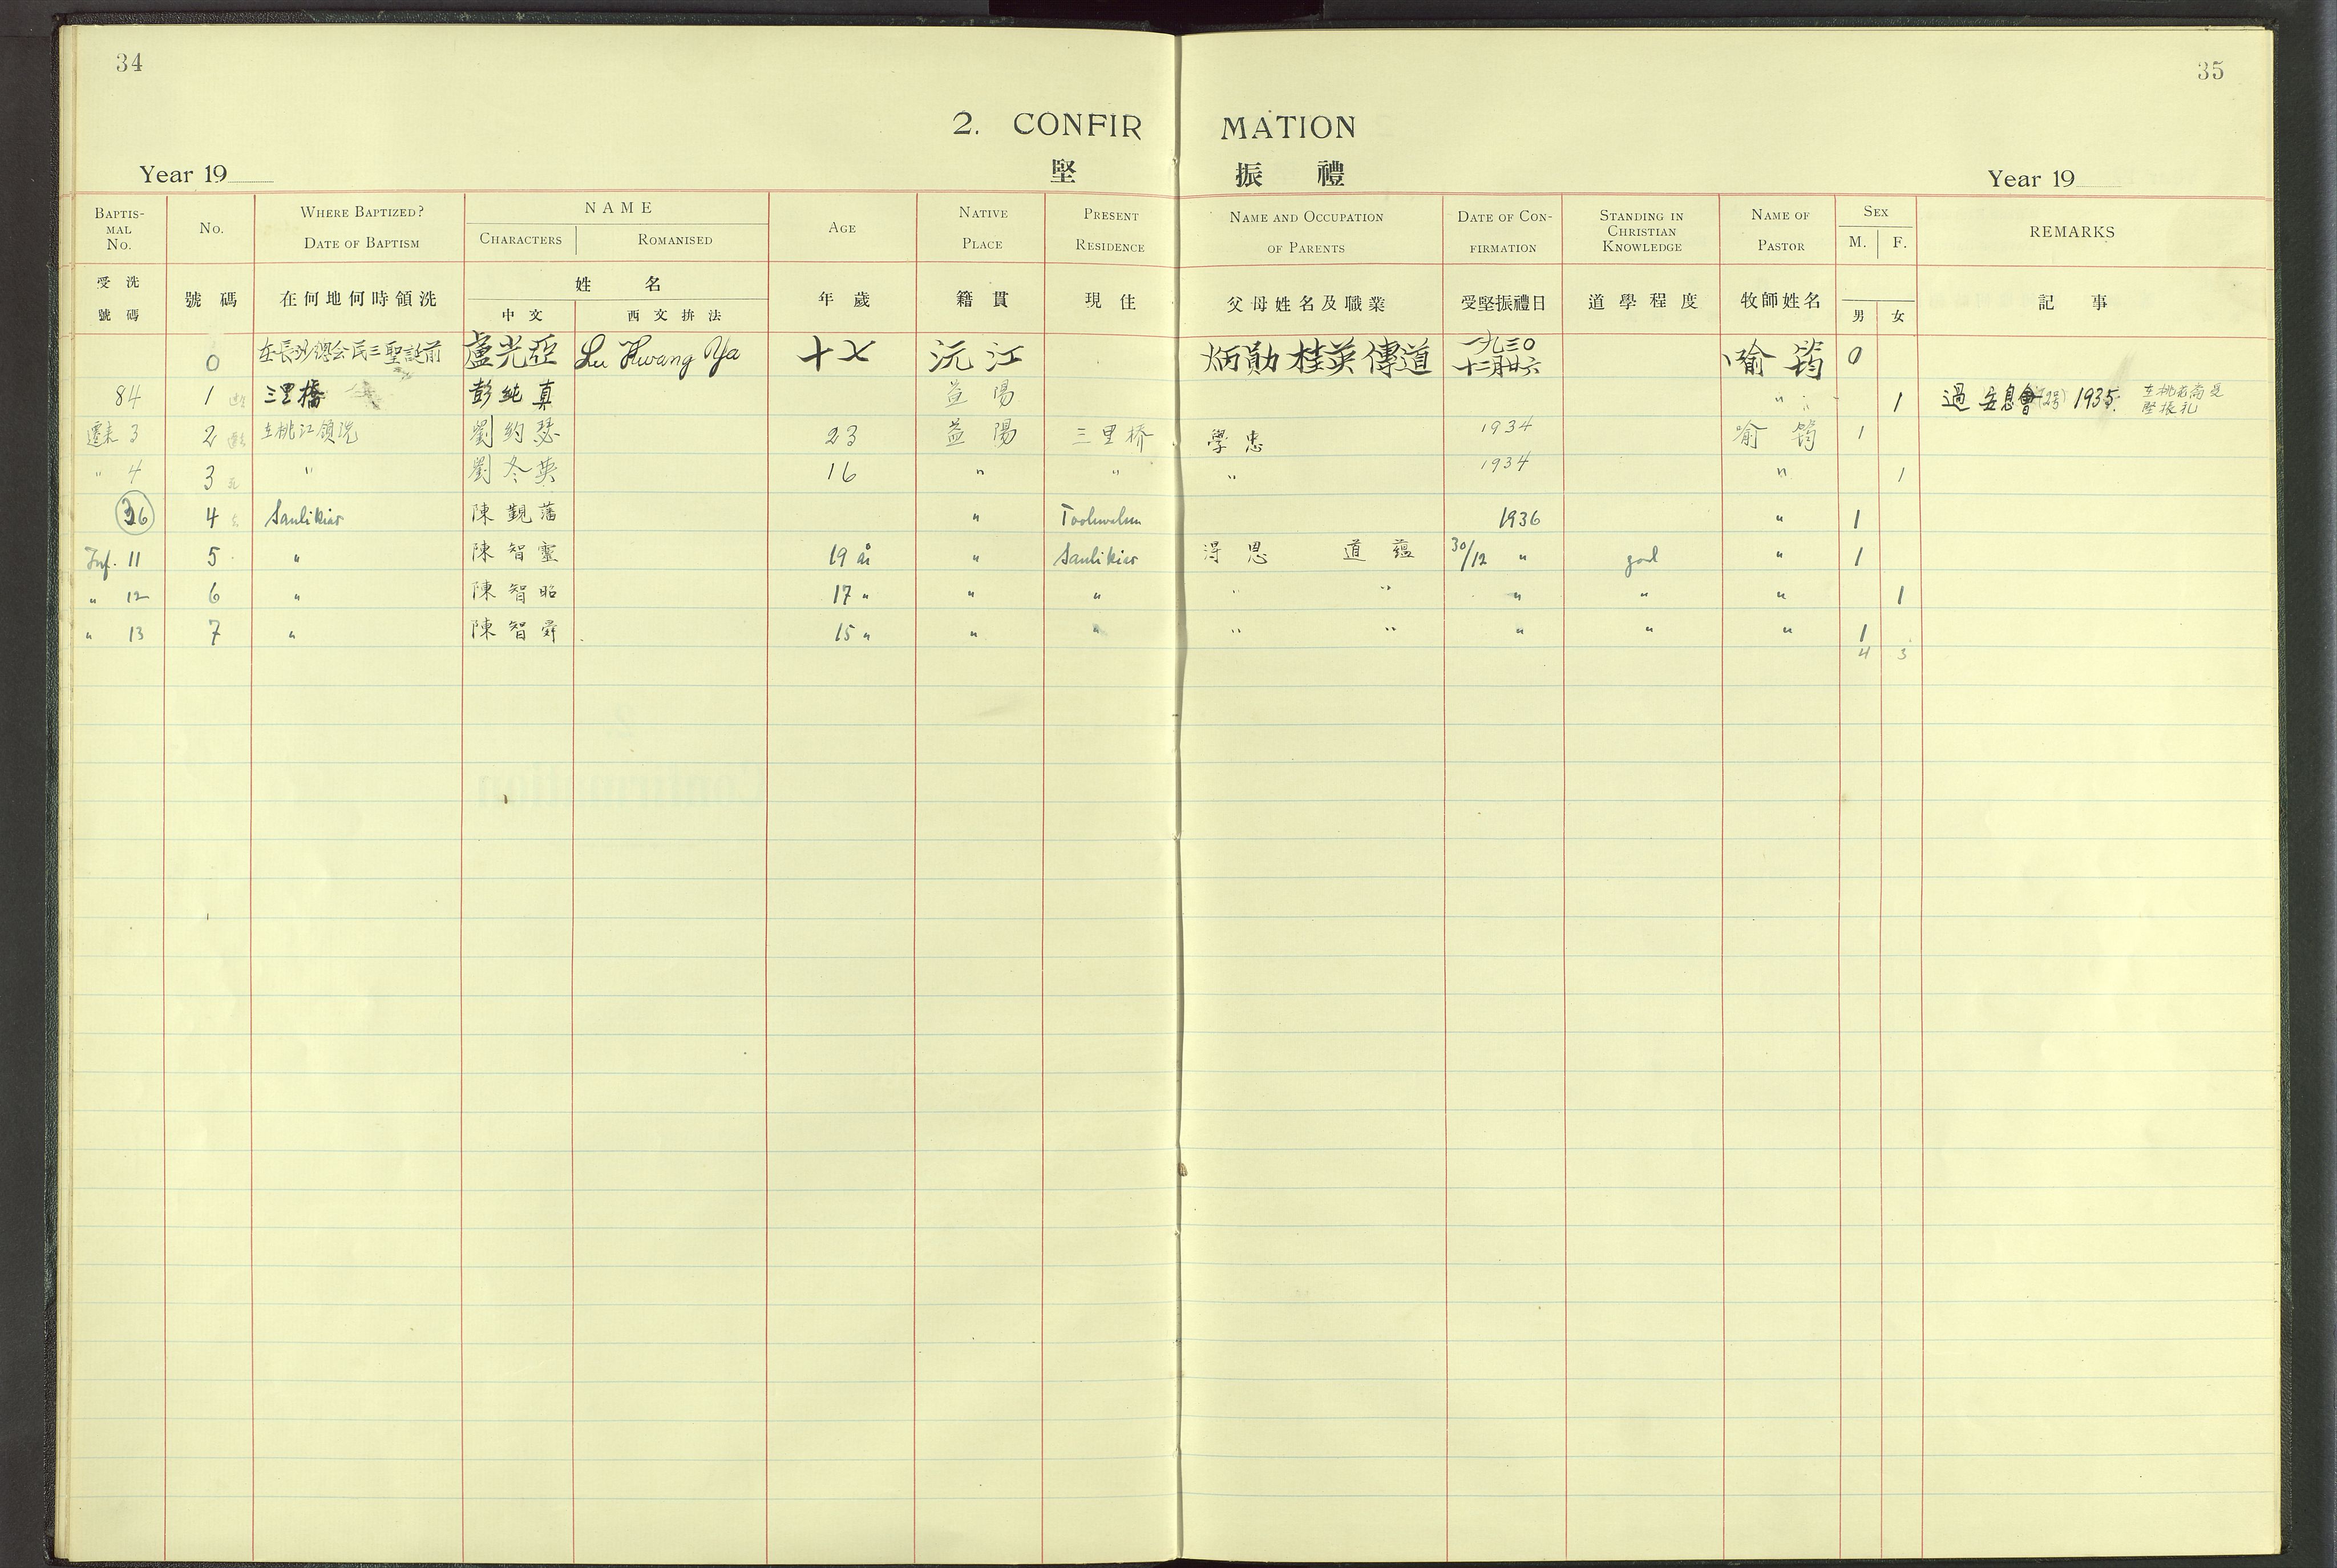 34
35
2. CONFIRMATION
堅振禮
Year 19
Year 19
BAPTISMAL No. No. WHERE BAPTIZED? DATE OF BAPTISM NAME CHARACTERS ROMANISED AGE NATIVE PLACE PRESENT RESIDENCE NAME AND OCCUPATION OF PARENTS DATE OF CONFIRMATION STANDING IN CHRISTIAN KNOWLEDGE NAME OF PASTOR SEX M. F. REMARKS
受洗號碼 號碼 在何地何時領洗 姓名 中文 西文拚法 年歲 籍貫 現住 父母姓名及職業 受堅振禮日 道學程度 牧師姓名 男 女 記事
0 在長沙總会民三聖誕前 盧光亞 Lu Kwang Ya 十七 沅江 炳勛 桂英 傳道 一九三〇 十二月廿六 喻筠 0
84 1 三里橋 彭純真 益陽 " 1 過 安息會 1935.
遷来 3 2 在桃江領洗 劉約瑟 23 益陽 三里桥 學忠 1934 喻筠 1
" 4 3 " 劉冬英 16 " " " 1934 " 1
36 4 Sanlikiao 陳觀藩 " 1936 " 1
Inf. 11 5 " 陳智靈 19 år " Sanlikiao 得恩 道蘊 30/12 " god " 1
" 12 6 " 陳智昭 17 " " " " " " " " 1
" 13 7 " 陳智舜 15 " " " " " " " " 1
4 3